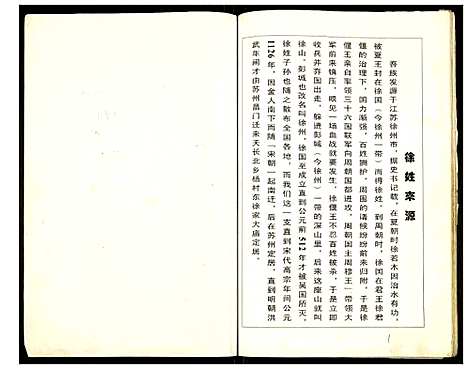 徐姓来源
吾族发源于江苏徐州市，据史书记载，在夏朝时徐若木因治水有功，
被夏王封在徐国（今徐州一带）而得徐姓，到周朝时，徐国在君王徐君
偃的治理下，国力渐强，百姓拥护，周围的诸候纷纷前来归附，于是徐
偃王亲自率领三十六国联军向周朝国都进攻，周朝国主周穆王一带领大
军前来镇压，眼见一场血战就要发生，徐偃王不忍百姓被杀，于是立即
收兵并弃国出走，躲进彭城（今徐州）一带的深山里，后来这座山就叫
徐山，彭城也改名叫徐州。徐国至成立直到公元前512年才被吴国所灭，
徐姓子孙也随之散布全国各地，而我们这一支直到宋代高宗年间公元
1126年，因金人南下而随一宋朝一起南迁，后在苏州定居，直到明朝洪
武年间才由苏州昌门迁来天长北乡杨村东徐家大庙定居。
1